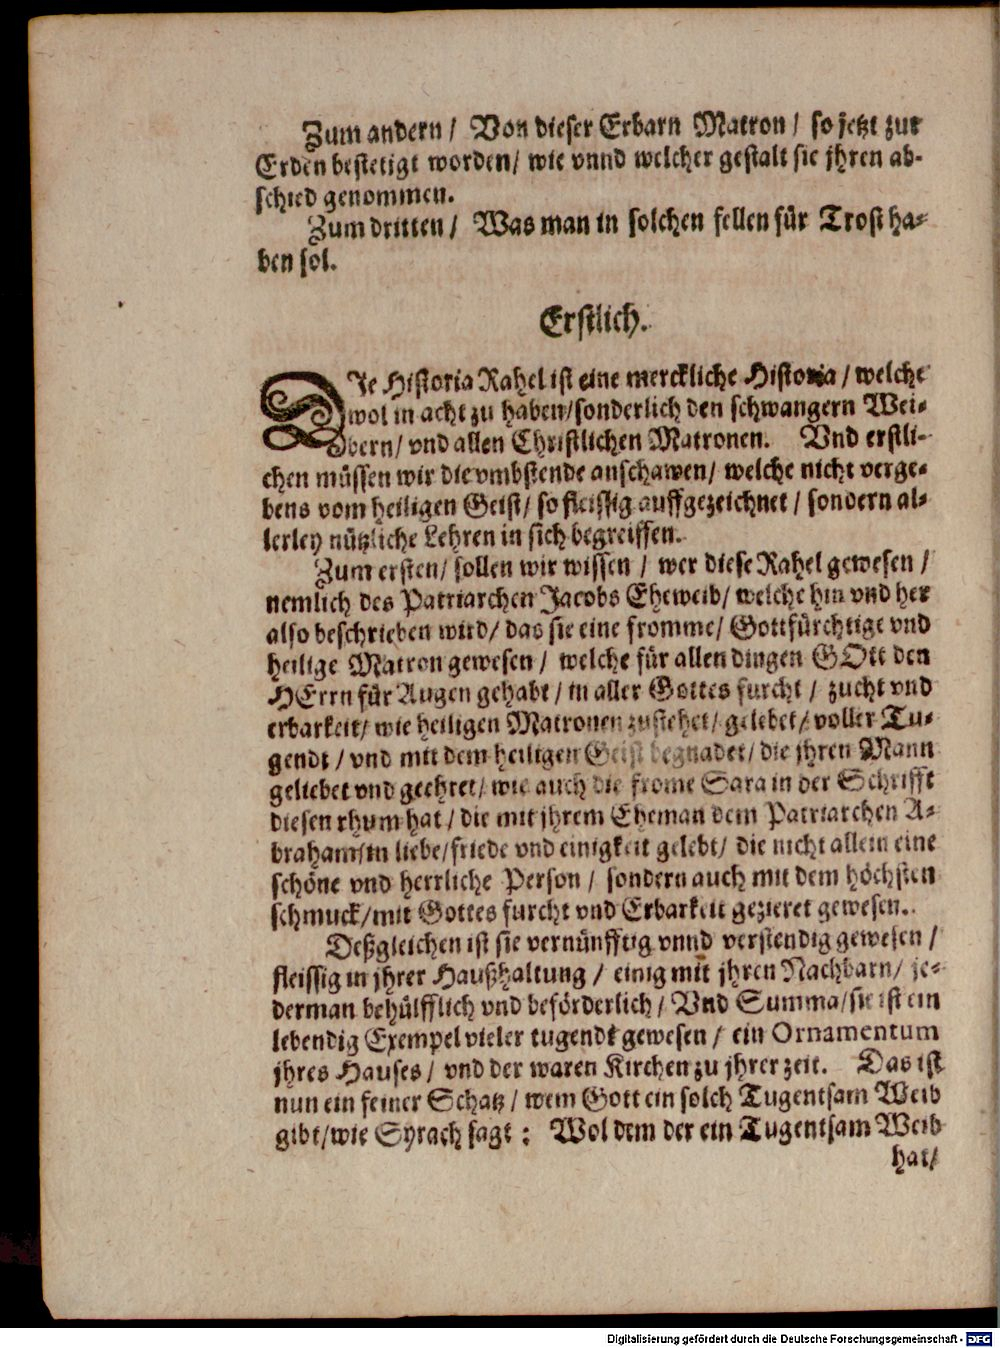 Zum andern / Von dieser Erbarn Matron / so jetzt zur
Erden bestetigt worden / wie vnnd welcher gestalt sie jhren ab-
schied genommen.
Zum dritten / Was man in solchen fellen für Trost ha-
ben sol.
Erstlich.
DJe Historia Rahel ist eine merckliche Historia / welche
wol in acht zu haben / sonderlich den schwangern Wei-
bern / vnd allen Christlichen Matronen. Vnd erstli-
chen müssen wir die vmbstende anschawen / welche nicht verge-
bens vom heiligen Geist / so fleissig auffgezeichnet / sondern al-
lerley nützliche Lehren in sich begreiffen.
Zum ersten / sollen wir wissen / wer diese Rahel gewesen /
nemlich des Patriarchen Jacobs Eheweib / welche hin vnd her
also beschrieben wird / das sie eine fromme / Gottfürchtige vnd
heilige Matron gewesen / welche für allen dingen GOtt den
HErrn für Augen gehabt / in aller Gottes furcht / zucht vnd
erbarkeit / wie heiligen Matronen zustehet / gelebet / voller Tu-
gendt / vnd mit dem heiligen Geist begnadet / die jhren Mann
geliebet vnd geehret / wie auch die frome Sara in der Schrifft
diesen rhum hat / die mit jhrem Eheman dem Patriarchen A-
braham / in liebe / friede vnd einigkeit gelebt / die nicht allein eine
schöne vnd herrliche Person / sondern auch mit dem höchsten
schmuck / mit Gottes furcht vnd Erbarkeit gezieret gewesen.
Deßgleichen ist sie vernünfftig vnnd verstendig gewesen /
fleissig in jhrer Haußhaltung / einig mit jhren Nachbarn / je-
derman behülfflich vnd beförderlich / Vnd Summa / sie ist ein
lebendig Exempel vieler tugendt gewesen / ein Ornamentum
jhres Hauses / vnd der waren Kirchen zu jhrer zeit. Das ist
nun ein feiner Schatz / wem Gott ein solch Tugentsam Weib
gibt / wie Syrach sagt : Wol dem der ein Tugentsam Weib
hat /
Digitalisierung gefördert durch die Deutsche Forschungsgemeinschaft - DFG